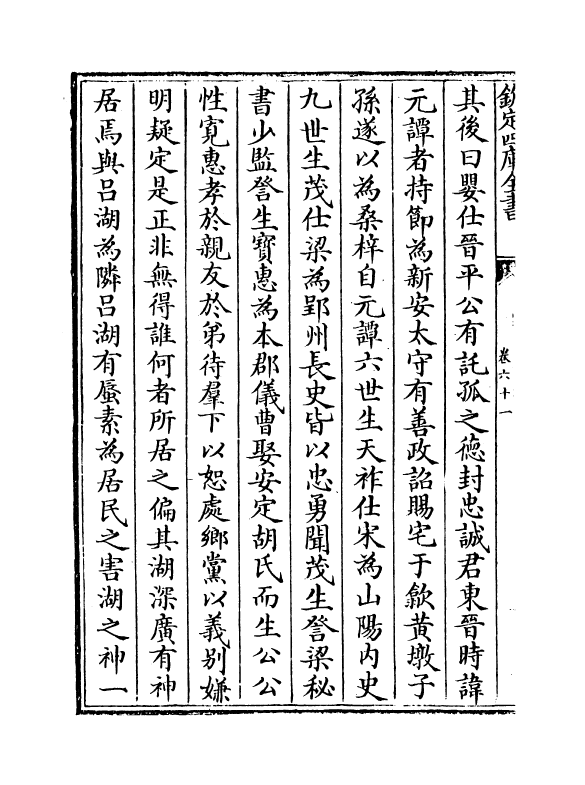 欽定四庫全書
卷六十一
其後曰嬰仕晉平公有託孤之德封忠誠君東晉時諱
元譚者持節為新安太守有善政詔賜宅于歙黄墩子
孫遂以為桑梓自元譚六世生天祚仕宋為山陽内史
九世生茂仕梁為郢州長史皆以忠勇聞茂生詧梁秘
書少監詧生寶惠為本郡儀曹娶安定胡氏而生公公
性寛惠孝於親友於弟待羣下以恕處鄉黨以義别嫌
明疑定是正非無得誰何者所居之偏其湖深廣有神
居焉與吕湖為隣吕湖有蜃素為居民之害湖之神一